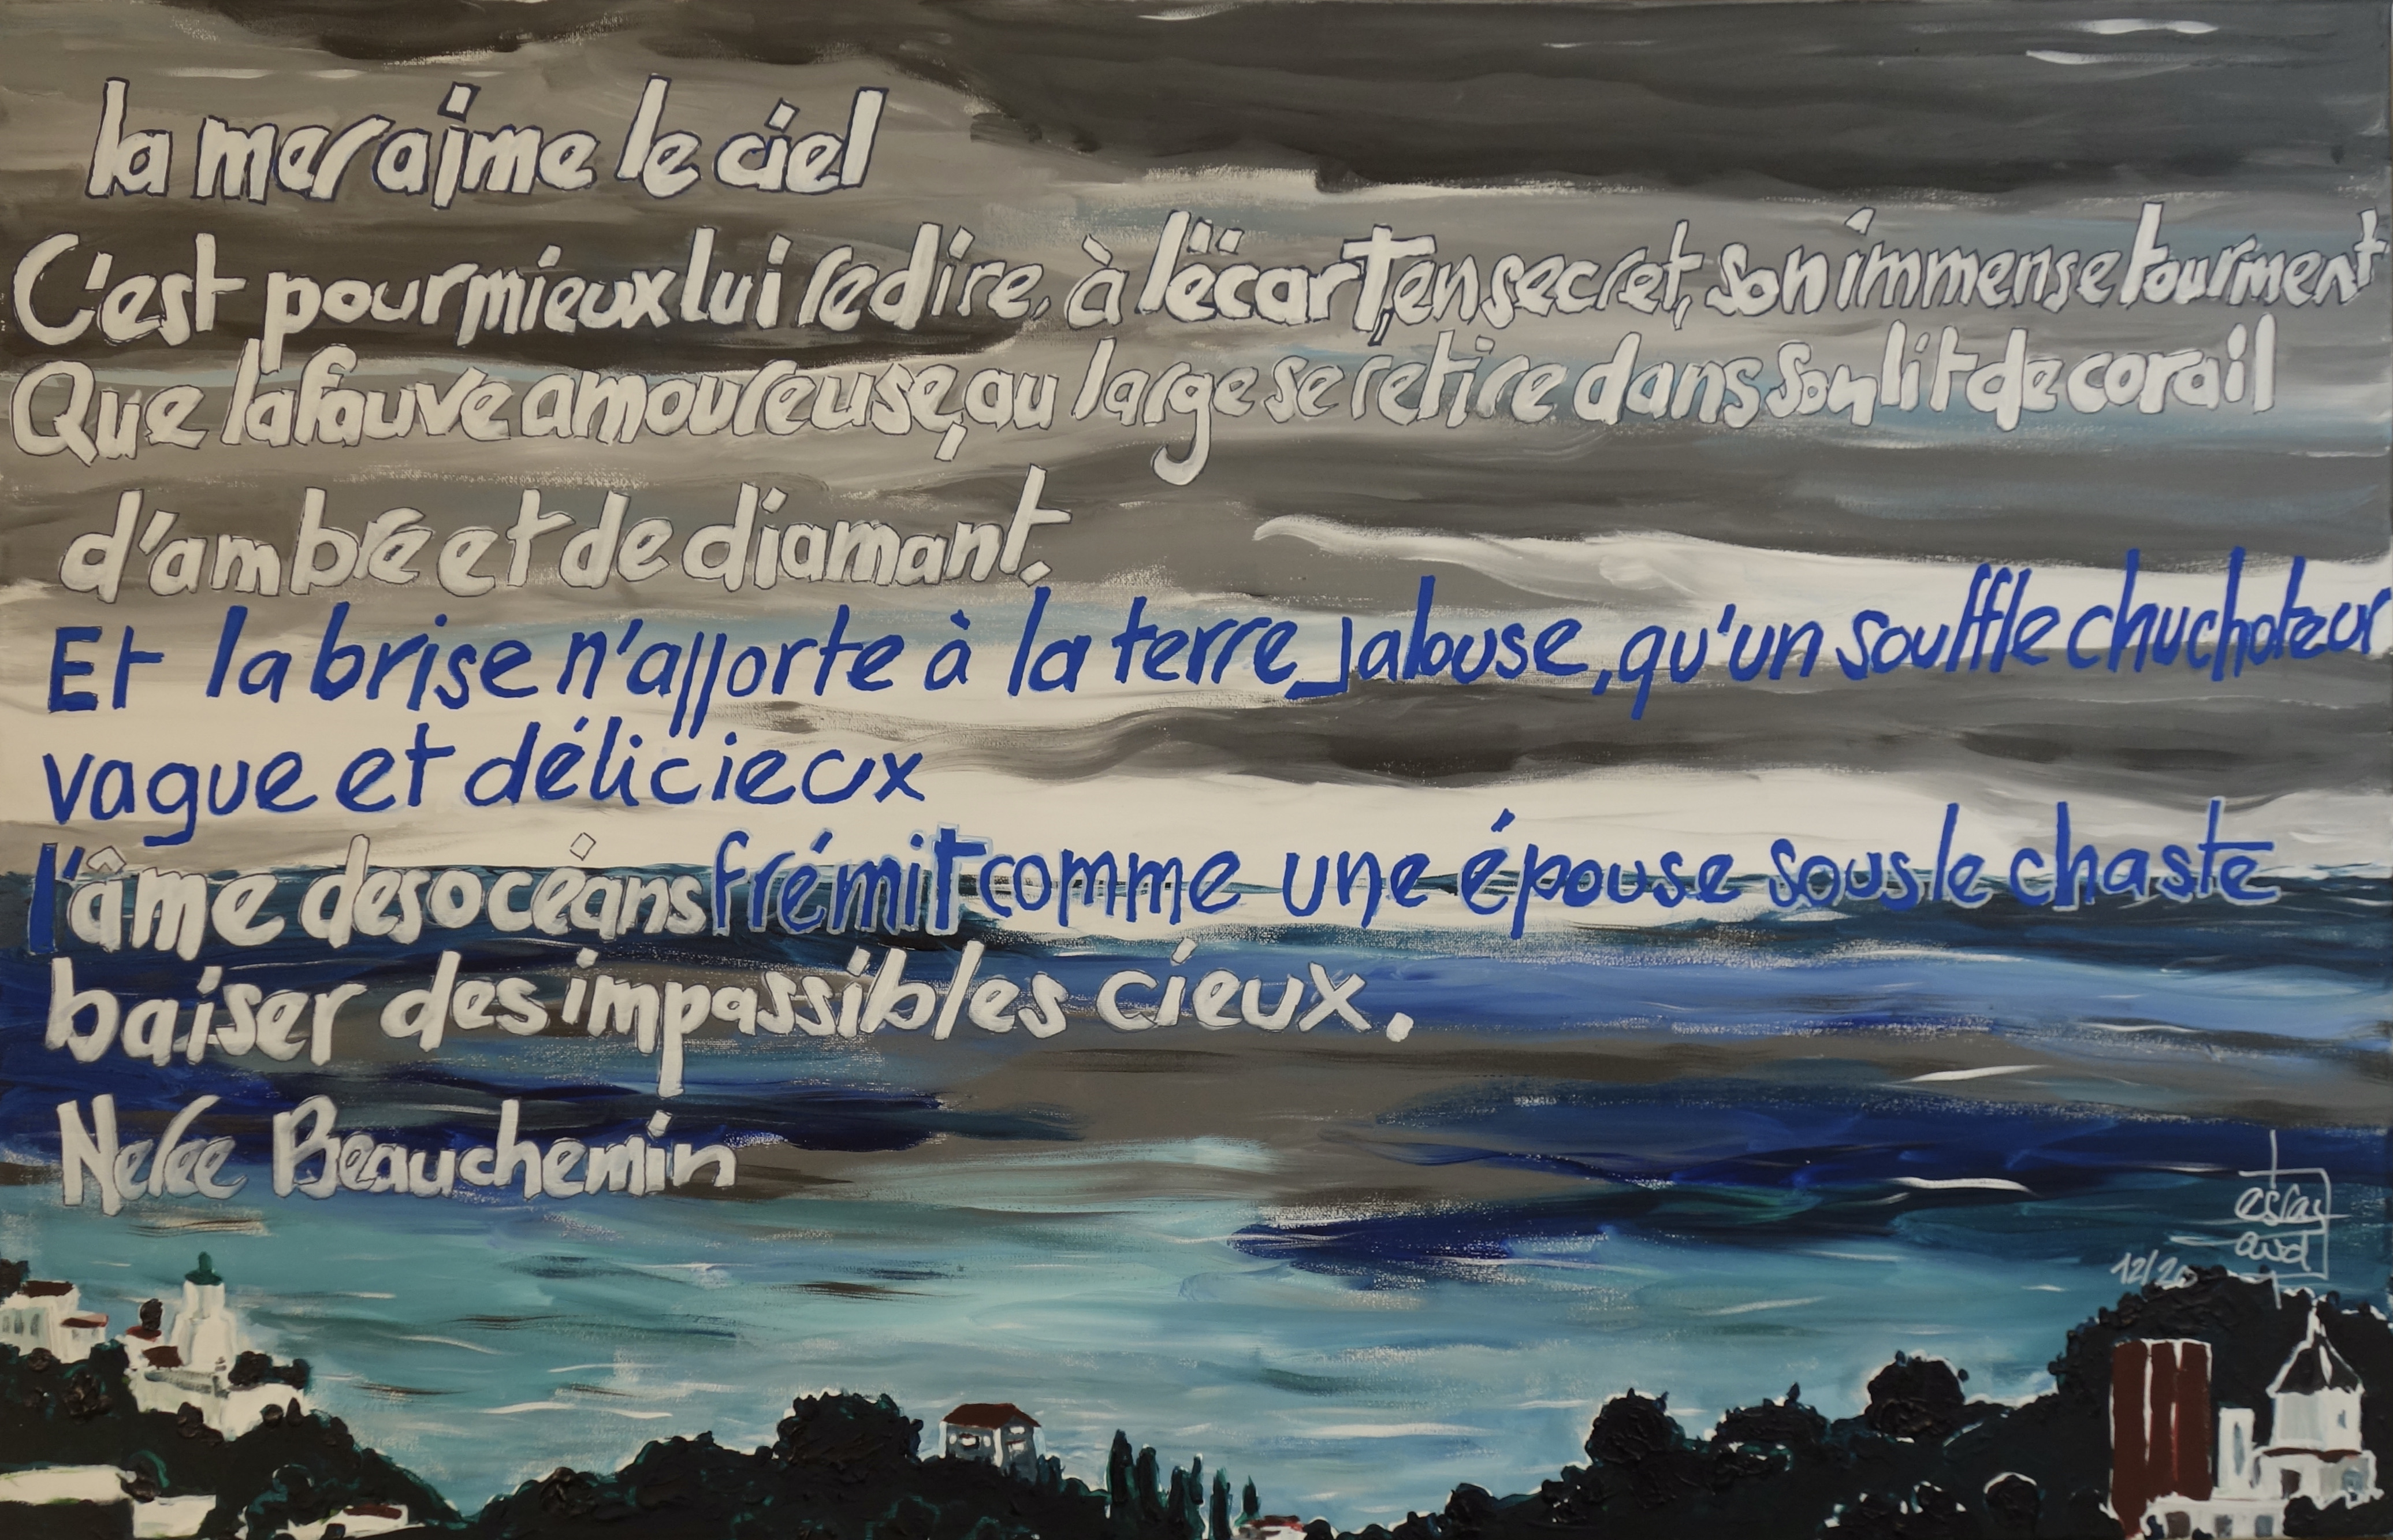 la mer aime le ciel
C'est pour mieux lui redire, à l'écart, en secret, son immense tourment
Que la fauve amoureuse, au large se retire dans son lit de corail
d'ambre et de diamant.
Et la brise n'apporte à la terre Jalouse, qu'un souffle chuchoteur
vague et délicieux
l'âme des océans frémit comme une épouse sous le chaste
baiser des impassibles cieux.
Nérée Beauchemin
12/20